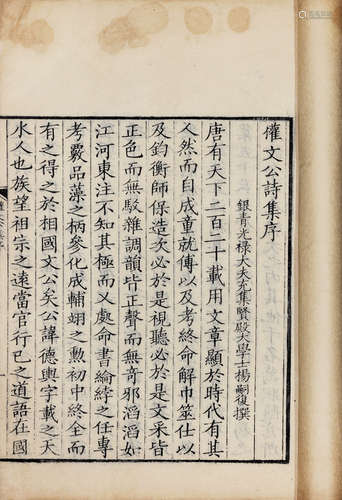 權文公詩集序
銀青光祿大夫充集賢殿大學士楊嗣復撰
唐有天下二百二十載用文章顯於時代有其
人然而自成童就傅以及考終命解巾筮仕以
及鈞衡師保造次必於是視聽必於是文采皆
正色而無駁雜調韻皆正聲而無奇邪滔滔如
江河東注不知其極而又處命書綸綍之任專
考覈品藻之柄參化成輔翊之勳初中終全而
有之得之於相國文公矣公諱德輿字載之天
水人也族望祖宗之遠當官行已之道語在國